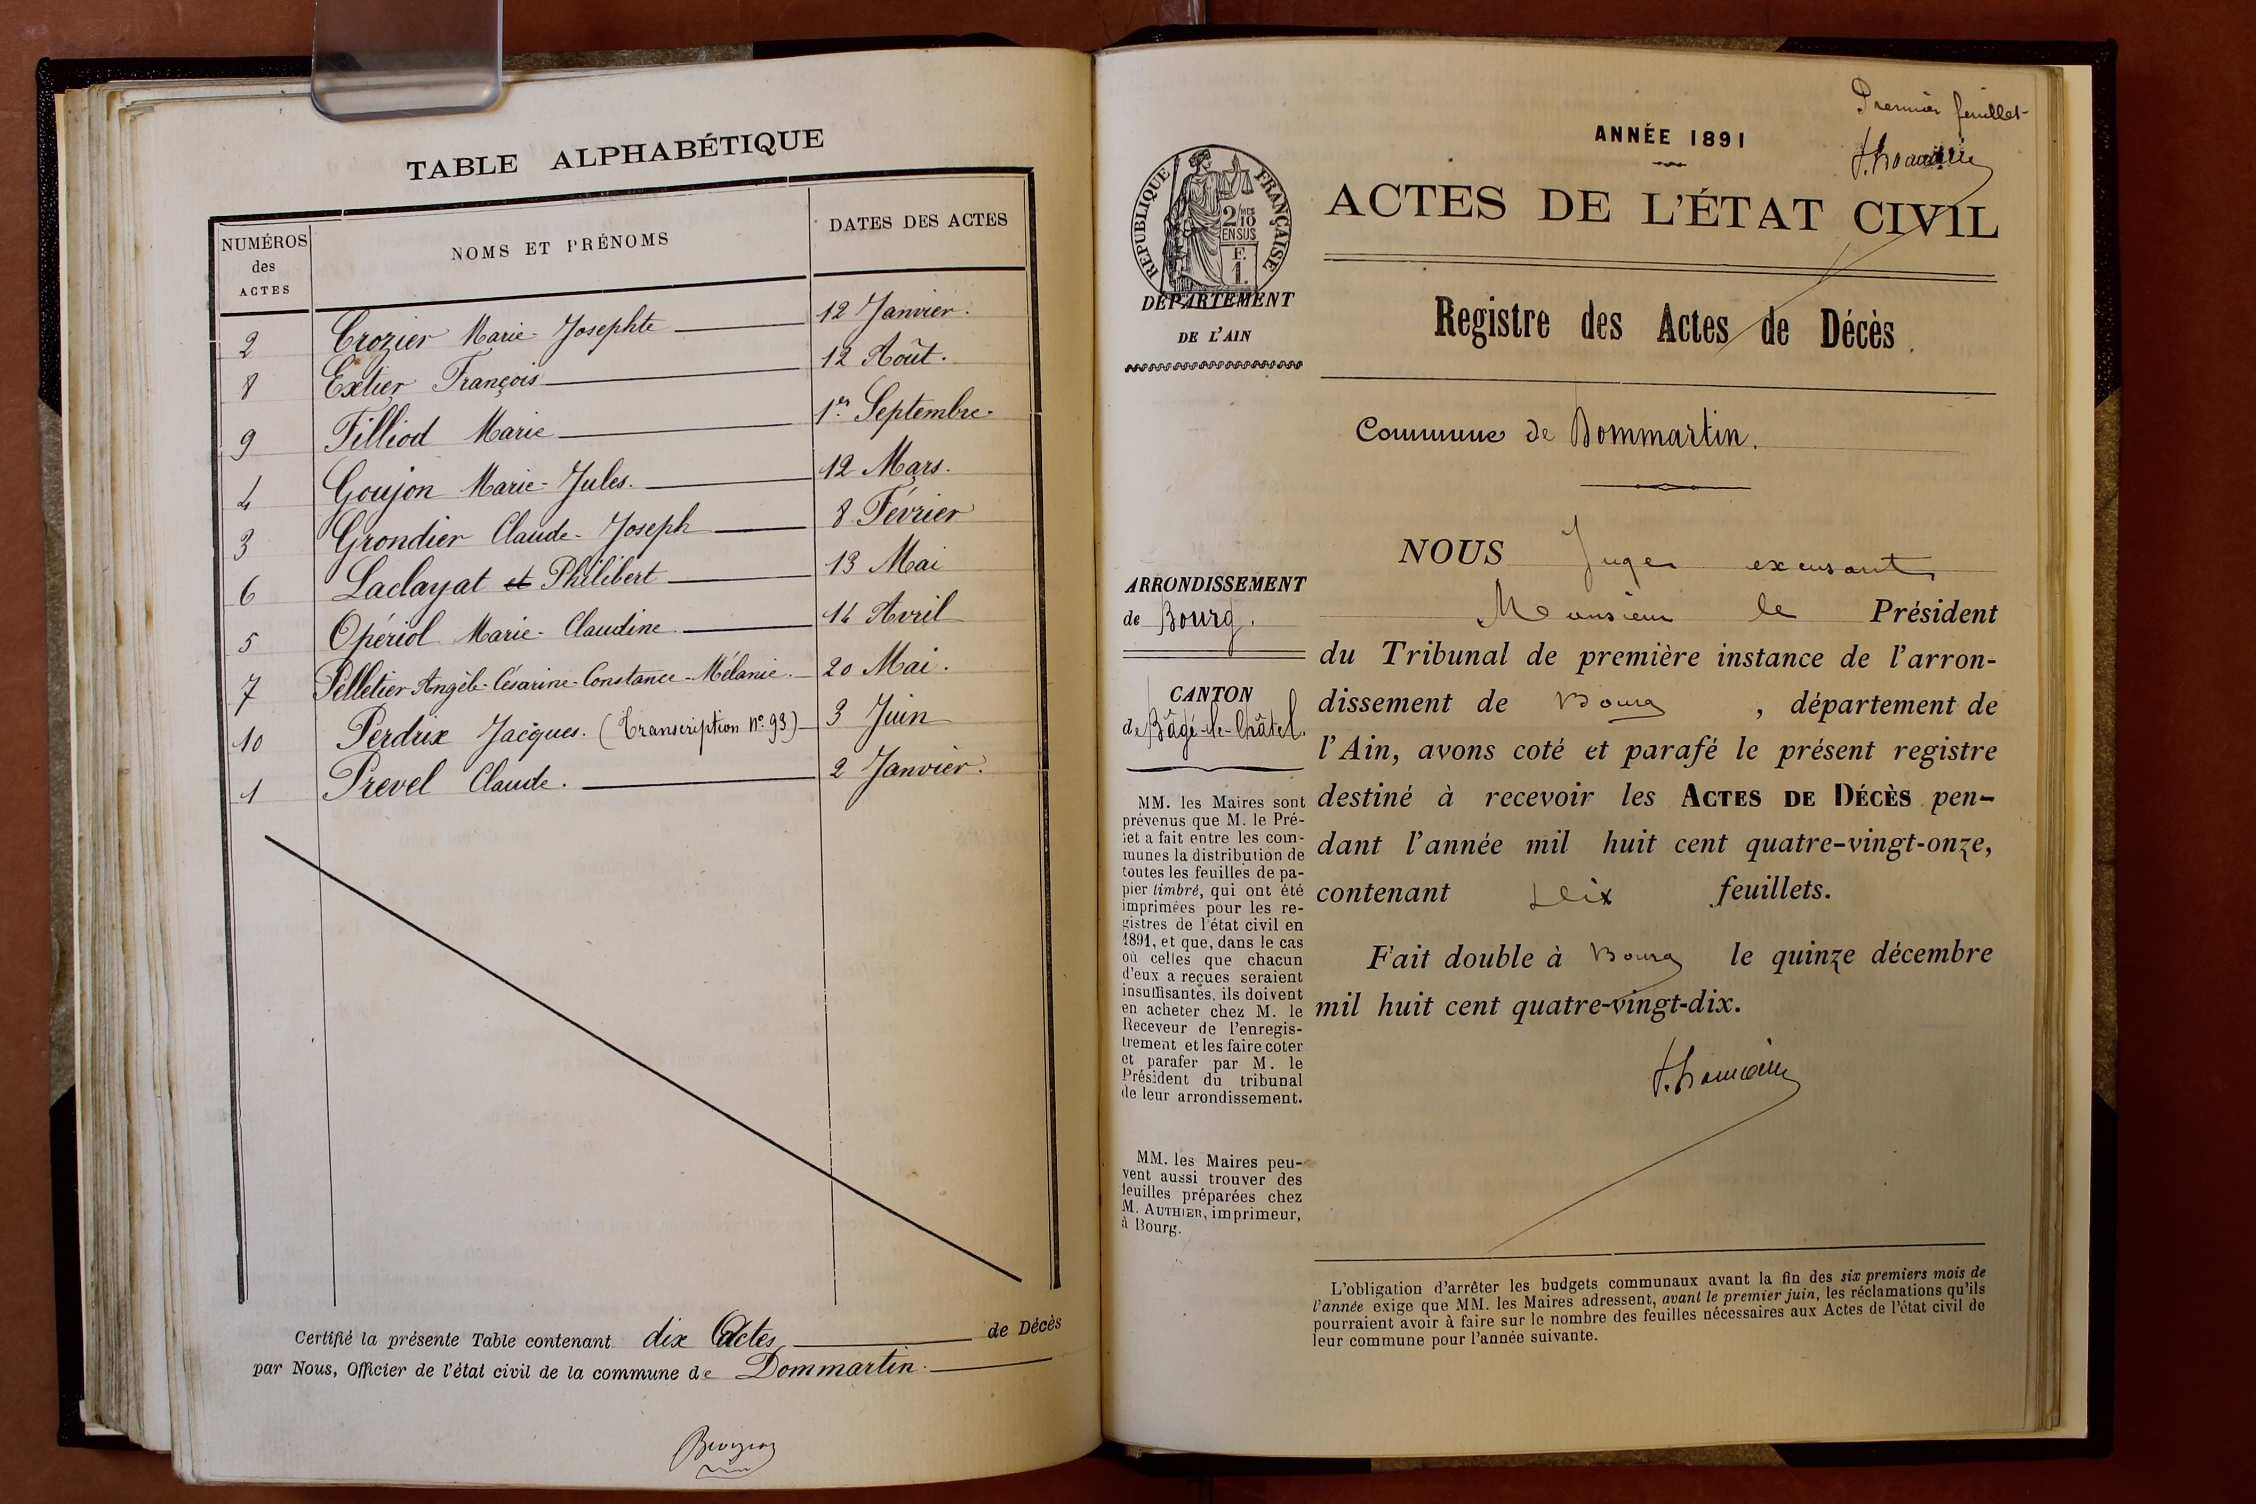 TABLE ALPHABÉTIQUE
NUMÉROS des ACTES NOMS ET PRÉNOMS DATES DES ACTES
2 Crozier Marie-Josephte 12 Janvier.
8 Extier François 12 Août.
9 Filliod Marie 1er Septembre.
4 Goujon Marie-Jules. 12 Mars.
3 Grondier Claude-Joseph 8 Février
6 Laclayat et Philibert 13 Mai
5 Opériol Marie-Claudine 14 Avril
7 Pelletier Angèle-Césarine-Constance-Mélanie. 20 Mai.
10 Perdrix Jacques. (Transcription No. 93) 3 Juin
1 Prevel Claude. 2 Janvier.
Certifié la présente Table contenant dix Actes de Décès
par Nous, Officier de l'état civil de la commune de Dommartin.
Premier feuillet
ANNÉE 1891
ACTES DE L'ÉTAT CIVIL
RÉPUBLIQUE FRANÇAISE
2/10 MES
EN SUS
F.
1.
DÉPARTEMENT
DE L'AIN
Registre des Actes de Décès.
Commune de Dommartin.
ARRONDISSEMENT
de Bourg.
CANTON
de Bâgé-le-Châtel.
MM. les Maires sont
prévenus que M. le Pré-
fet a fait entre les com-
munes la distribution de
toutes les feuilles de pa-
pier timbré, qui ont été
imprimées pour les re-
gistres de l'état civil en
1891, et que, dans le cas
où celles que chacun
d'eux a reçues seraient
insuffisantes, ils doivent
en acheter chez M. le
Receveur de l'enregis-
trement et les faire coter
et parafer par M. le
Président du tribunal
de leur arrondissement.
MM. les Maires peu-
vent aussi trouver des
feuilles préparées chez
M. AUTHIER, imprimeur,
à Bourg.
NOUS Juge excusant
Monsieur le Président
du Tribunal de première instance de l'arron-
dissement de Bourg, département de
l'Ain, avons coté et parafé le présent registre
destiné à recevoir les ACTES DE DÉCÈS pen-
dant l'année mil huit cent quatre-vingt-onze,
contenant dix feuillets.
Fait double à Bourg le quinze décembre
mil huit cent quatre-vingt-dix.
L'obligation d'arrêter les budgets communaux avant la fin des six premiers mois de
l'année exige que MM. les Maires adressent, avant le premier juin, les réclamations qu'ils
pourraient avoir à faire sur le nombre des feuilles nécessaires aux Actes de l'état civil de
leur commune pour l'année suivante.